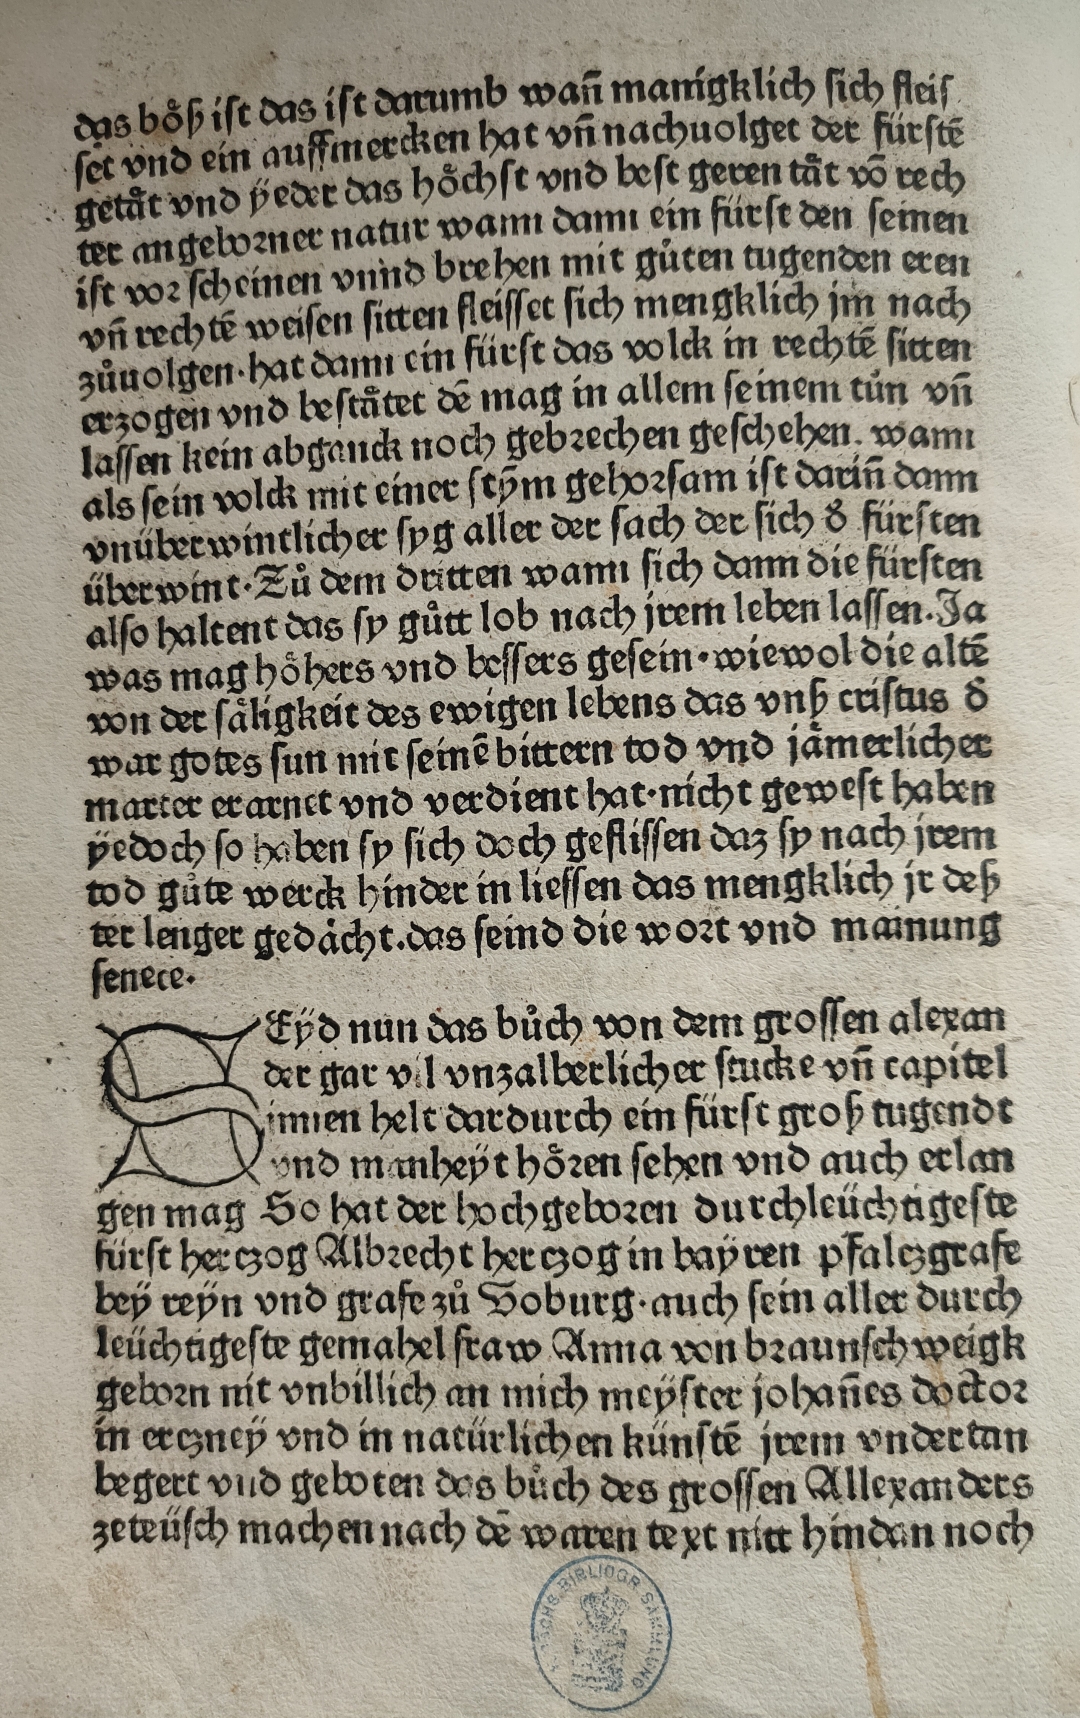 das böß ist das ist darumb wañ manigklich sich fleis
set vnd ein auffmercken hat vñ nachuolget der fürstẽ
getåt vnd ÿeder das höchst vnd best geren tåt võ rech
ter angeborner natur wann dann ein fürst den seinen
ist vor scheinen vnnd brehen mit gůten tugenden eren
vñ rechtẽ weisen sitten fleisset sich mengklich jm nach
zůuolgen·hat dann ein fürst das volck in rechtẽ sitten
erzogen vnd beståtet dẽ mag in allem seinem tůn vñ
lassen kein abganck noch gebrechen geschehen. wann
als sein volck mit einer stỹm gehorsam ist dariñ dann
vnüberwintlicher syg aller der sach der sich d̕ fürsten
überwint·Zů dem dritten wann sich dann die fürsten
also haltent das sy gůtt lob nach jrem leben lassen.Ja
was mag höhers vnd bessers gesein·wiewol die altẽ
von der såligkeit des ewigen lebens das vnß cristus d̕
war gotes sun mit seinẽ bittern tod vnd jåmerlicher
marter erarnet vnd verdient hat·nicht gewest haben
ÿedoch so haben sy sich doch geflissen daz sy nach jrem
tod gůte werck hinder in liessen das mengklich jr deß
ter lenger gedåcht.das seind die wort vnd mainung
senece·
SEÿd nun das bůch von dem grossen alexan
der gar vil vnzalberlicher stucke vñ capitel
innen helt dardurch ein fürst groß tugendt
vnd manheÿt hören sehen vnd auch erlan
gen mag So hat der hochgeboren durchleüchtigeste
fürst herczog Albrecht herczog in baÿren pfalczgrafe
beÿ reÿn vnd grafe zů Voburg·auch sein aller durch
leüchtigeste gemahel fraw Anna von braunschweigk
geborn nit vnbillich an mich meÿster johañes doctor
in erczneÿ vnd in natürlichen künstẽ jrem vndertan
begert vnd geboten das bůch des grossen Allexanders
zeteüsch machen nach dẽ waren text nitt hindan noch
BIBLIOGR. SAMMLUNG